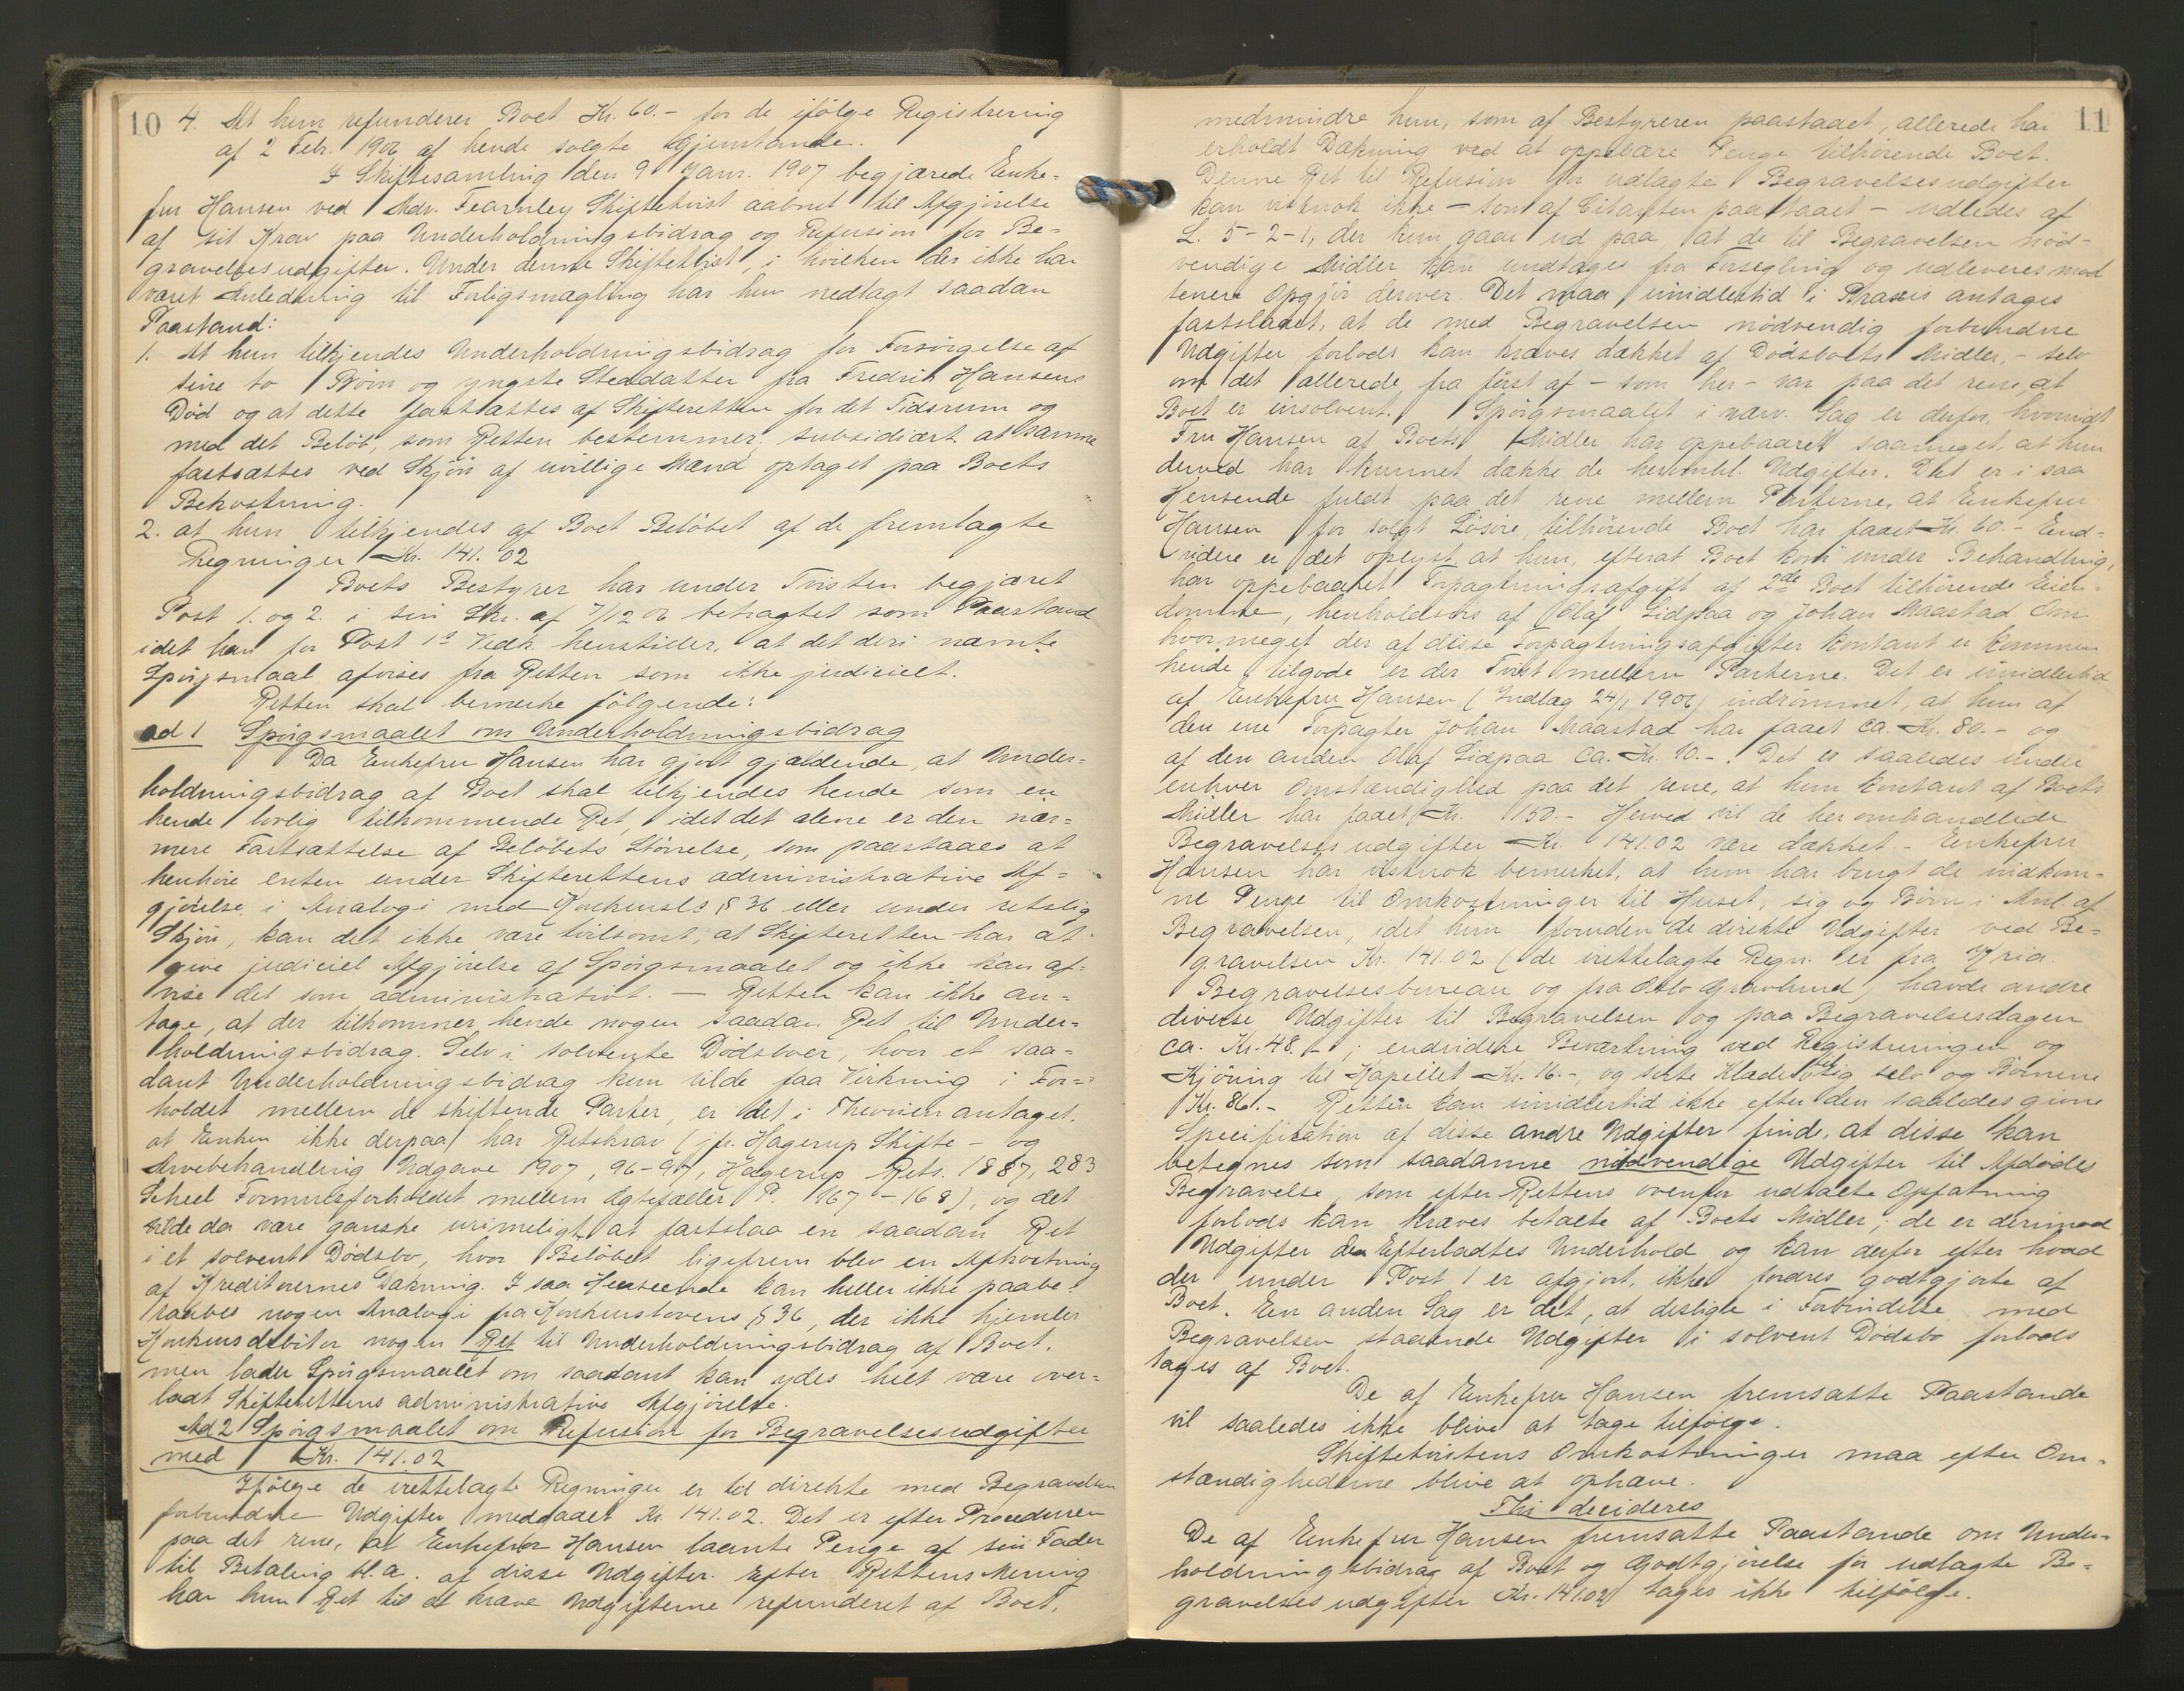 10
4. At hun refunderer Boet Kr. 60.- for de ifölge Registrering
af 2 Febr. 1906 af hende solgte Gjenstande.
I Skiftesamling den 9 Janr. 1907 begjærede Enke-
fru Hansen ved Adv. Fearnley Skiftetvist aabnet til Afgjörelse
af sit Krav paa Underholdningsbidrag og Refusion for Be-
gravelsesudgifter. Under denne Skiftetvist, i hvilken der ikke har
været Anledning til Forligsmægling har hun nedlagt saadan
Paastand:
1. At hun tilkjendes Underholdningsbidrag for Forsörgelse af
sine to Börn og yngste Steddatter fra Fredrik Hansens
Död og at dette fastsættes af Skifteretten for det Tidsrum og
med det Belöb, som Retten bestemmer, subsidiært at samme
fastsættes ved Skjön af uvillige Mænd optaget paa Boets
Bekostning.
2. at hun tilkjendes af Boet Belöbet af de fremlagte
Regninger Kr. 141.02
Boets Bestyrer har under Tvisten begjæret
Post 1. og 2. i sin Skr. af 7/12 06 betragtet som Paastand
idet han for Post 1s Vedk. henstiller, at det deri nævnte
Spörgsmaal afvises fra Retten som ikke judicielt.
Retten skal bemerke fölgende:
ad 1 Spörgsmaalet om Underholdningsbidrag
Da Enkefru Hansen har gjort gjældende, at Under-
holdningsbidrag af Boet skal tilkjendes hende som en
hende lovlig tilkommende Ret, idet det alene er den nær-
mere Fastsættelse af Belöbets Störrelse, som paastaaes at
henhöre enten under Skifterettens administrative Af-
gjörelse i Analogi med Konkursls § 36 eller under retslig
Skjön, kan det ikke være tvilsomt, at Skifteretten har at
give judiciel Afgjörelse af Spörgsmaalet og ikke kan af-
vise det som administrativt. — Retten kan ikke an-
tage, at der tilkommer hende nogen saadan Ret til Under-
holdningsbidrag. Selv i solvente Dödsboer, hvor et saa-
dant Underholdningsbidrag kun vilde faa Virkning i For-
holdet mellem de skiftende Parter, er det i Theorien antaget,
at Enken ikke derpaa har Retskrav (jfr. Hagerup Skifte- og
Arvebehandling Udgave 1907, 96-97, Hagerup Rets. 1887, 283
Scheel Formuesforholdet mellem Ægtefæller P. 167-168), og det
vilde da være ganske urimeligt at fastslaa en saadan Ret
i et solvent Dödsbo, hvor Belöbet ligefrem blev en Afkortning
af Kreditorernes Dækning. I saa Henseende kan heller ikke paabe-
raabes nogen Analogi fra Konkurslovens § 36, der ikke hjemler
Konkursdebitor nogen Ret til Underholdningsbidrag af Boet,
men lader Spörgsmaalet om saadant kan ydes helt være over-
ladt Skifterettens administrative Afgjörelse.
Ad 2 Spörgsmaalet om Refusion for Begravelsesudgifter
med Kr. 141.02
Ifölge de irettelagte Regninger er til direkte med Begravelsen
forbundne Udgifter medgaaet Kr. 141.02. Det er efter Proceduren
paa det rene, at Enkefru Hansen laante Penge af sin Fader
til Betaling bl.a. af disse Udgifter. Efter Rettens Mening
har hun Ret til at kræve Udgifterne refunderet af Boet,
11
medmindre hun, som af Bestyreren paastaaet, allerede har
erholdt Dækning ved at oppebære Penge tilhörende Boet.
Denne Ret til Refusion for udlagte Begravelsesudgifter
kan vistnok ikke — som af Citanten paastaaet — udledes af
L. 5-2-1, der kun gaar ud paa, at de til Begravelsen nöd-
vendige Midler kan undtages fra Forsegling og udleveres mod
senere Opgjör derover. Det maa imidlertid i Praxis antages
fastslaaet, at de med Begravelsen nödvendig forbundne
Udgifter forlods kan kræves dækket af Dödsboets Midler, - selv
om det allerede fra först af - som her - var paa det rene, at
Boet er insolvent. Spörgsmaalet i nærv. Sag er derfor, hvorvidt
Fru Hansen af Boets Midler har oppebaaret saameget, at hun
derved har kunnet dække de heromhl. Udgifter. Det er i saa
Henseende fuldt paa det rene mellem Parterne, at Enkefru
Hansen for solgt Lösöre tilhörende Boet har faaet Kr. 60.- End-
videre er det oplyst at hun, efterat Boet kom under Behandling,
har oppebaaret Forpagtningsafgift af 2de Boet tilhörende Eien-
domme, henholdsvis af Olaf Lidpaa og Johan Maastad. Om
hvormeget der af disse Forpagtningsafgifter kontant er kommen
hende tilgode er der Tvist mellem Parterne. Det er imidlertid
af Enkefru Hansen (Indlæg 24/1 1906) indrömmet, at hun af
den ene Forpagter Johan Maastad har faaet ca. Kr. 80.- og
af den anden Olaf Lidpaa ca. Kr. 10.-. Det er saaledes under
enhver Omstændighed paa det rene, at hun kontant af Boets
Midler har faaet Kr. 150.- Herved vil de her omhandlede
Begravelsesudgifter Kr. 141.02 være dækket. - Enkefru
Hansen har vistnok bemerket, at hun har brugt de indkom-
ne Penge til Omkostninger til Huset, sig og Börn i Anl. af
Begravelsen, idet hun foruden de direkte Udgifter ved Be-
gravelsen Kr. 141.02 (de irettelagte Regn. er fra Kria.
Begravelsesbureau og fra Oslo Gravlund) havde andre
diverse Udgifter til Begravelsen og paa Begravelsesdagen
ca. Kr. 48.-; endvidere Beværtning ved Registreringen og
Kjöring til Kapellet Kr. 16.-, og sorte Klæder til sig selv og Börnene
Kr. 86.- Retten kan imidlertid ikke efter den saaledes givne
Specifikation af disse andre Udgifter finde, at disse kan
betegnes som saadanne nödvendige Udgifter til Afdödes
Begravelse, som efter Rettens ovenfor udtalte Opfatning
forlods kan kræves betalte af Boets Midler; de er derimod
Udgifter Efterladtes Underhold og kan derfor efter hvad
der under Post 1 er afgjort, ikke fordres godtgjorte af
Boet. En anden Sag er det, at deslige i Forbindelse med
Begravelsen staaende Udgifter i solvent Dödsbo forlods
tages af Boet.
De af Enkefru Hansen fremsatte Paastande
vil saaledes ikke blive at tage tilfölge.
Skiftetvistens Omkostninger maa efter Om-
stændighederne blive at ophæve.
Thi decideres
De af Enkefru Hansen fremsatte Paastande om Under-
holdningsbidrag af Boet og Godtgjörelse for udlagte Be-
gravelsesudgifter Kr. 141.02 tages ikke tilfölge.